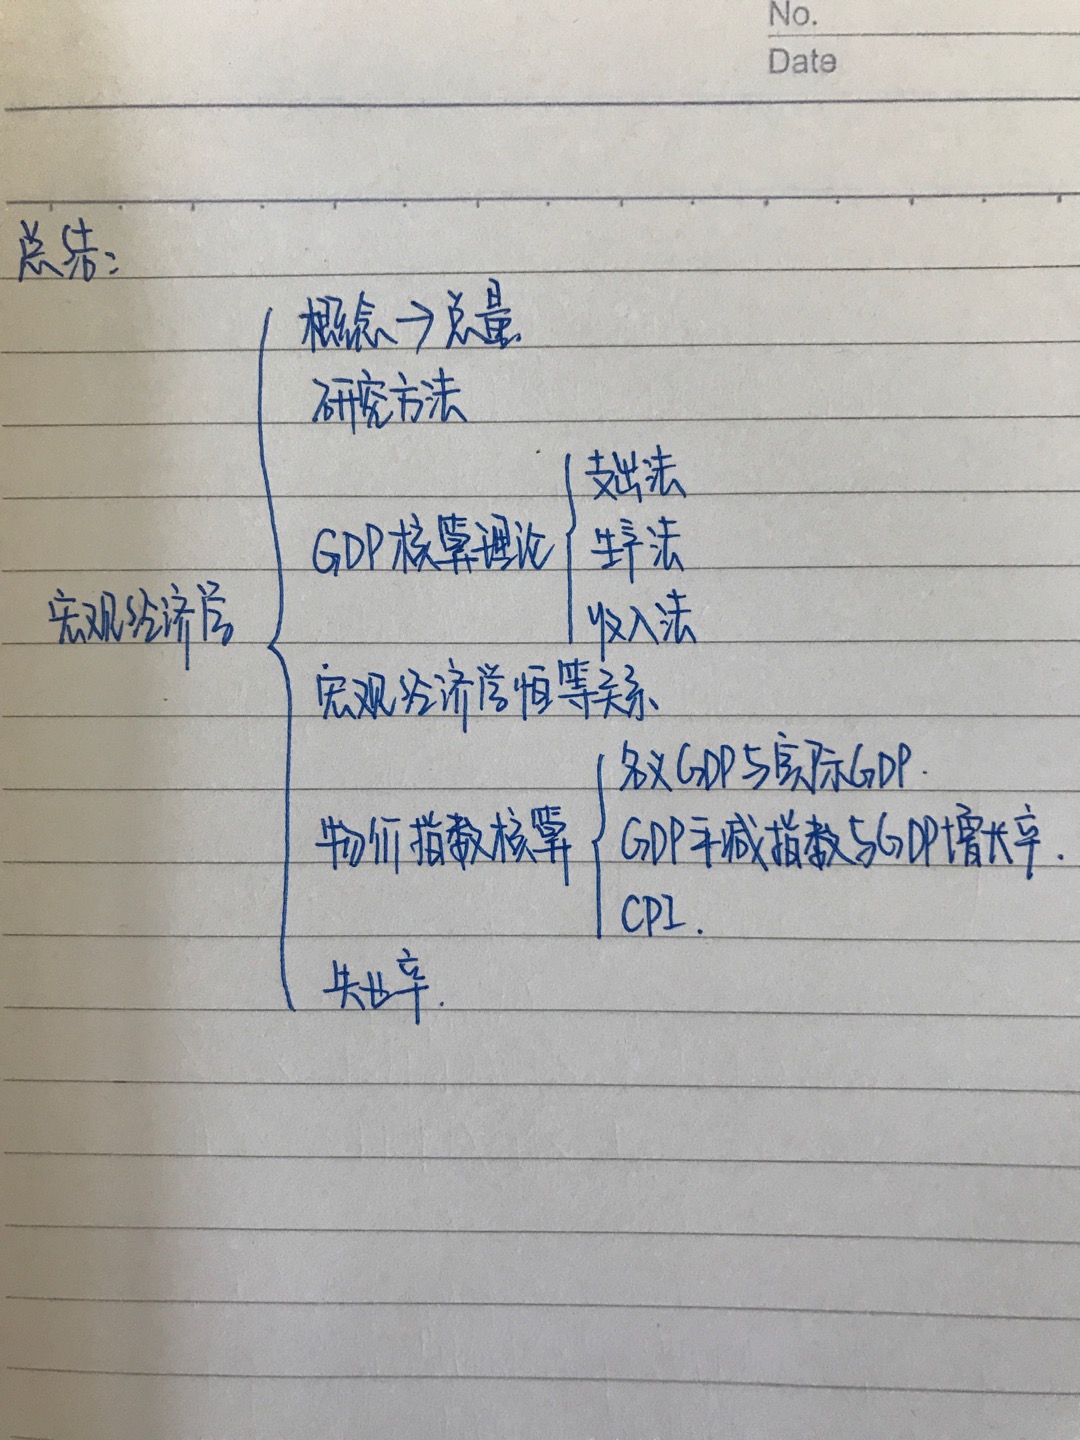 No.
Date
总结：
概念→总量
研究方法
支出法
GDP核算理论
生产法
收入法
宏观经济学
宏观经济学恒等关系
名义GDP与实际GDP.
物价指数核算
GDP平减指数与GDP增长率.
CPI.
失业率.